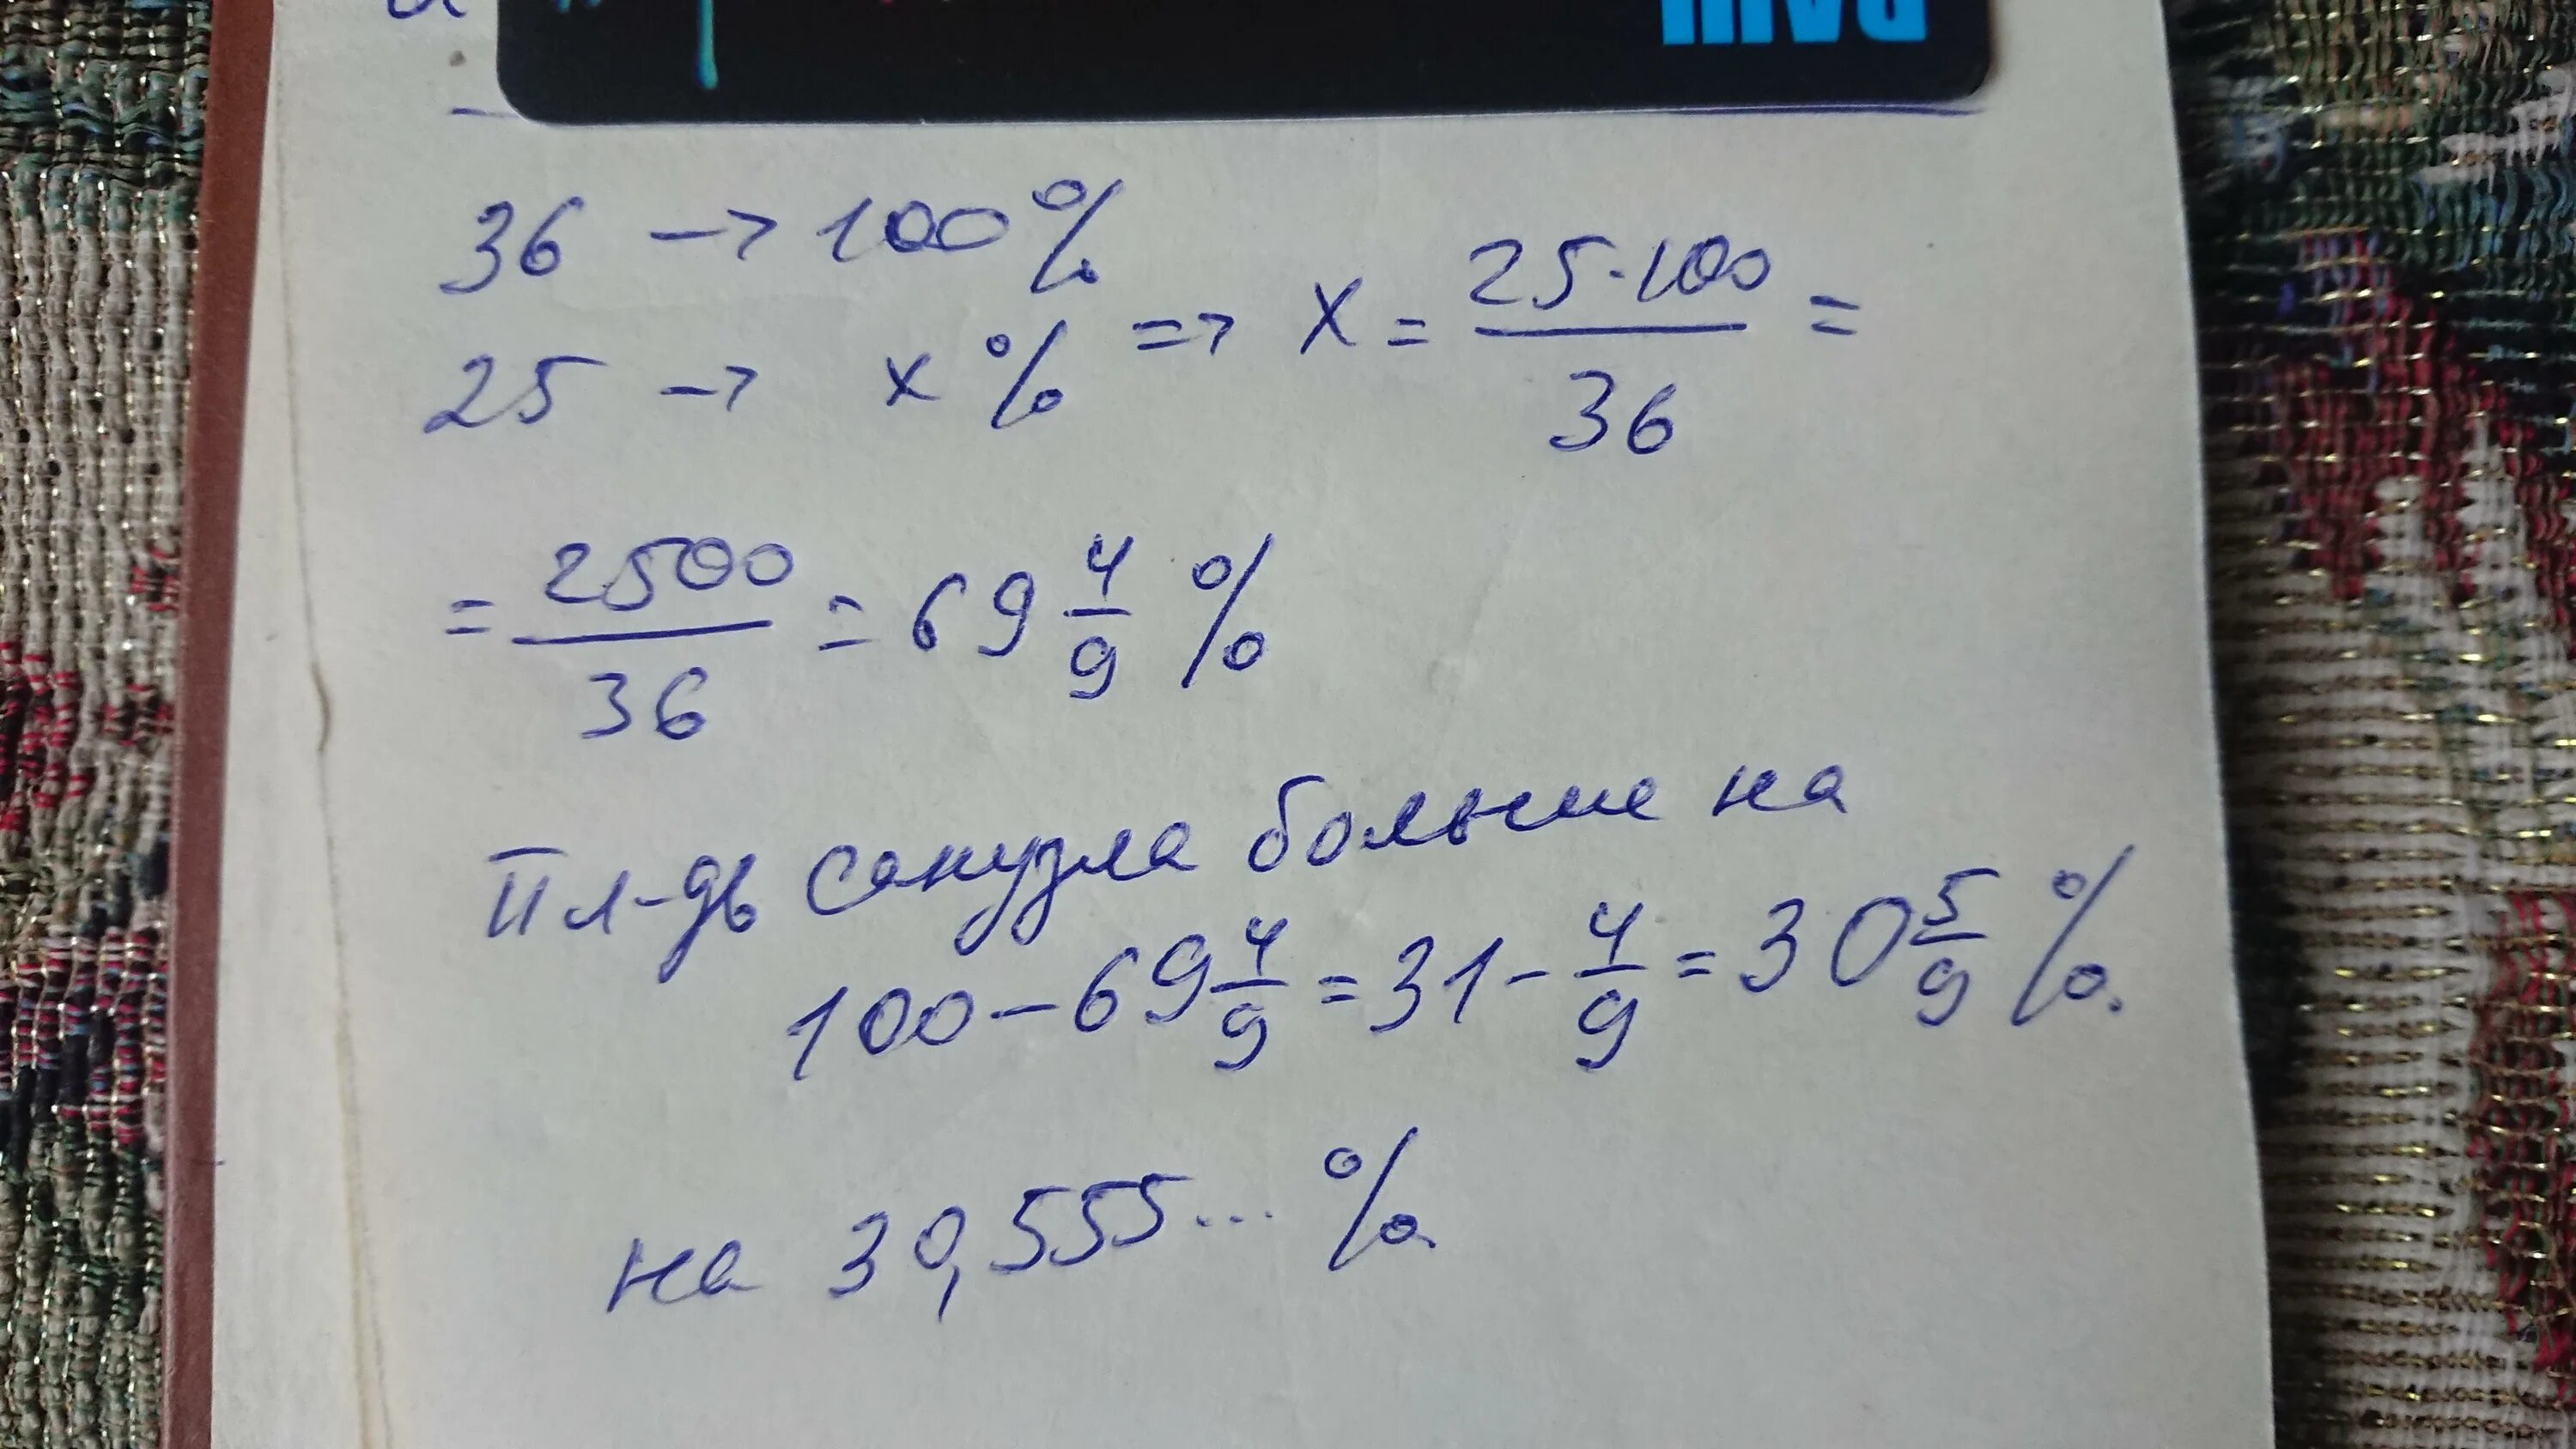 36 → 100%
25 → x% => x = 25·100/36 =
= 2500/36 = 69 4/9 %
Пл-дь санузла больше на
100 - 69 4/9 = 31 - 4/9 = 30 5/9 %.
на 30,555... %.